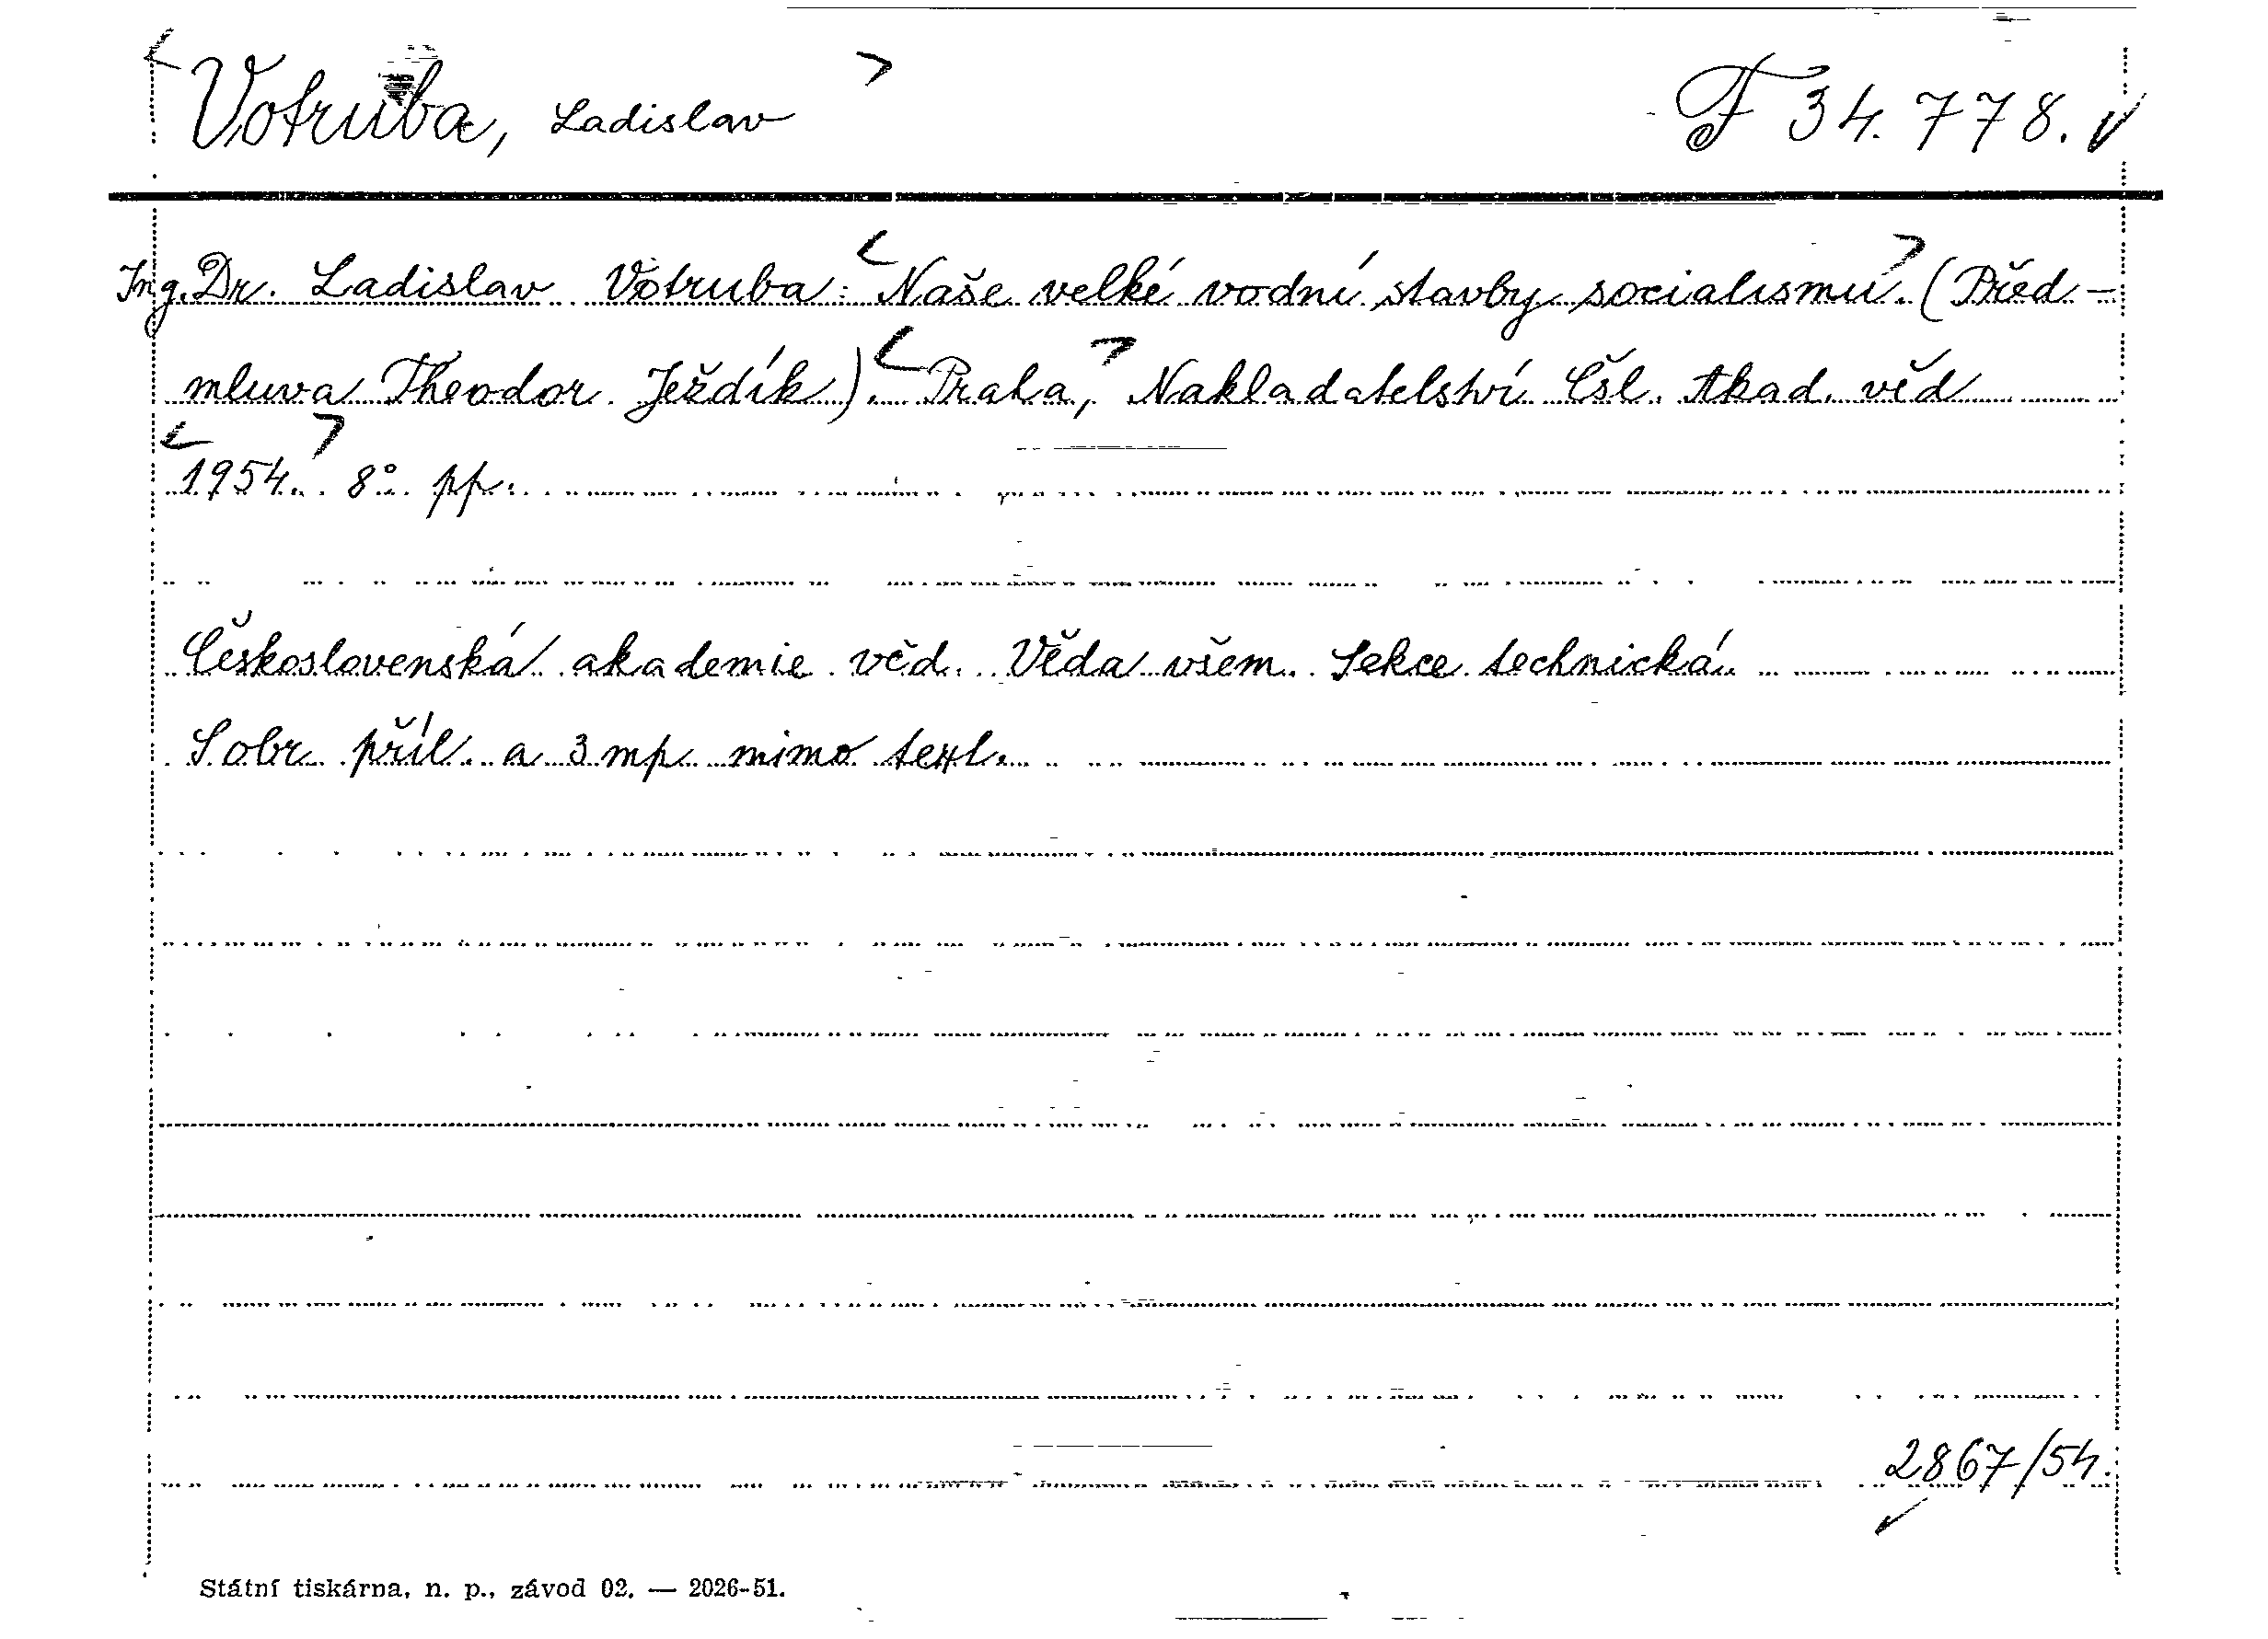 Votruba, Ladislav F 34.778.
Ing. Dr. Ladislav Votruba: Naše velké vodní stavby socialismu. (Před-
mluva Theodor Ježdík). Praha, Nakladatelství Čsl. Akad. věd
1954. 8° pp.
Československá akademie věd. Věda všem. Sekce technická.
S obr. příl. a 3 mp mimo text.
2867/54.
Státní tiskárna, n. p., závod 02. — 2026-51.